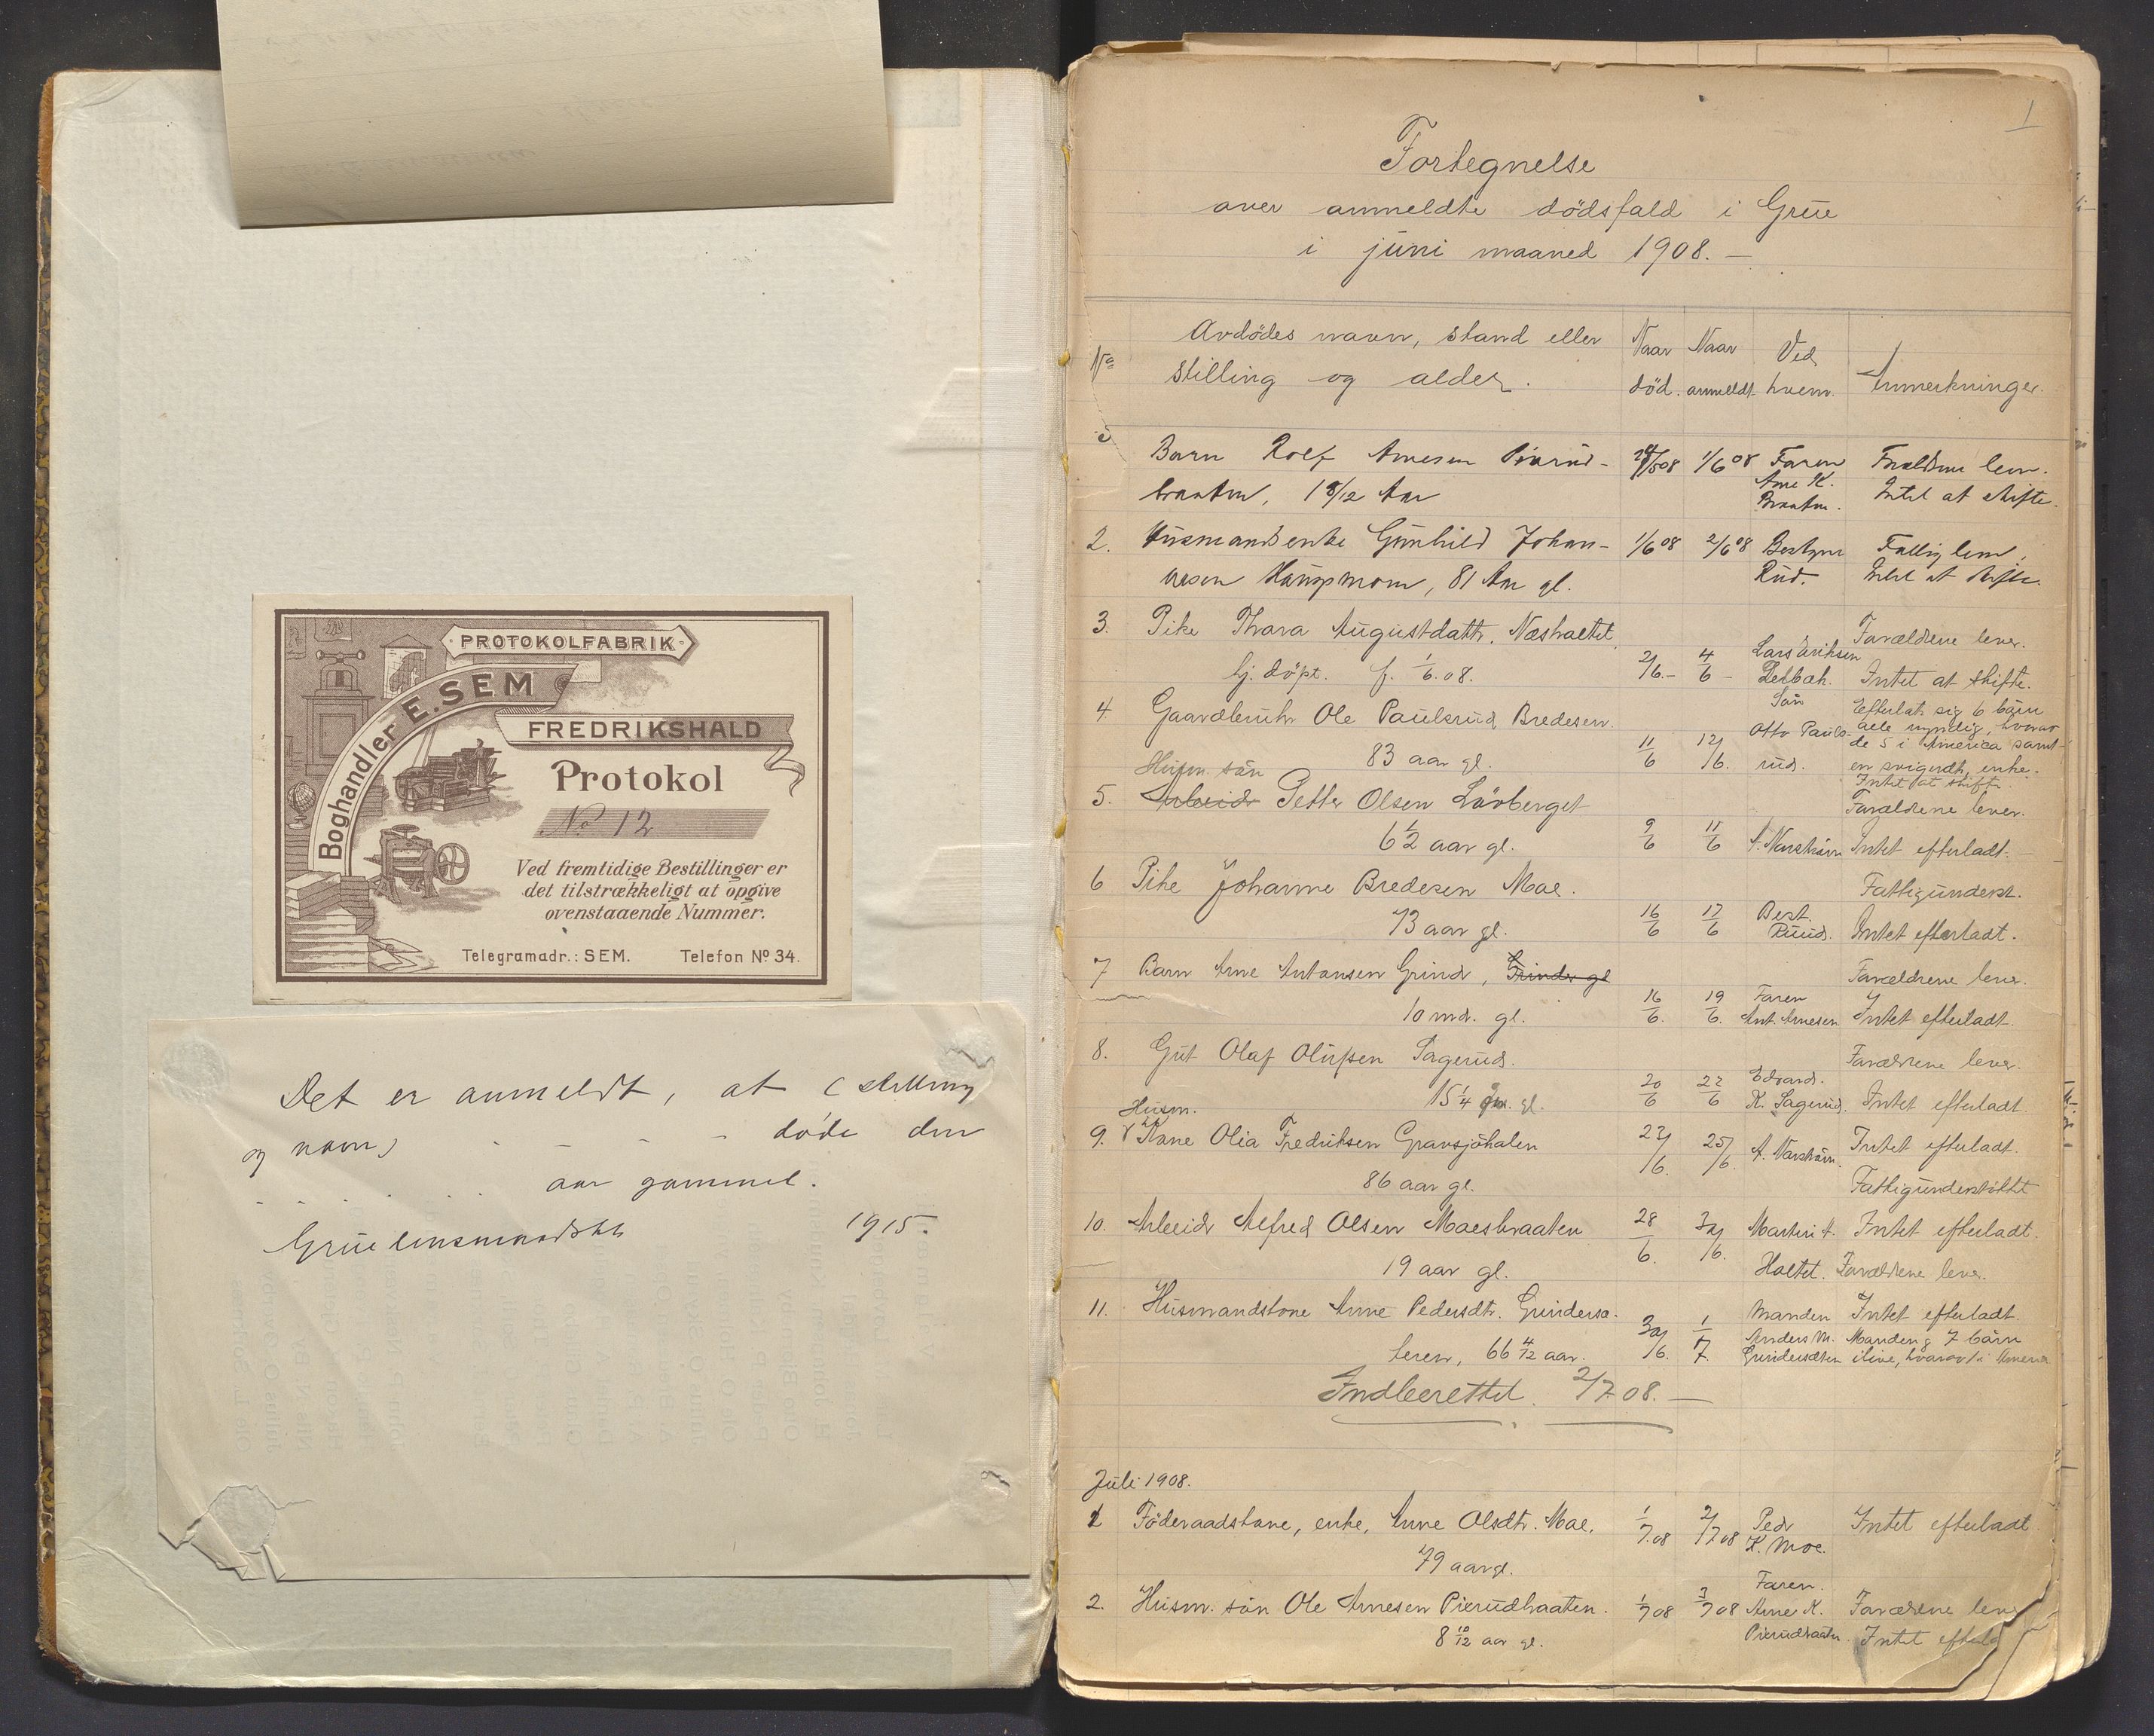 PROTOKOLFABRIK
Boghandler E. SEM
FREDRIKSHALD
Protokol
No 12
Ved fremtidige Bestillinger er
det tilstrækkeligt at opgive
ovenstaaende Nummer.
Telegramadr.: SEM. Telefon No 34.
Det er anmeldt, at (stilling
og navn) - - - døde den
aar gammel.
Grue lensmand 1915.
1
Fortegnelse
over anmeldte dödsfald i Grue
i juni maaned 1908. —
No Avdödes navn, stand eller Naar Naar Ved Anmerkninger.
stilling og alder. död. anmeldt. hvem.
Barn Rolf Arnesen 1/6 08 Faren Forældrene lever.
braaten, 1 8/12 Aar Arne K. Intet at skifte.
Braaten.
2. Husmandsenke Gunhild Johan- 1/6 08 2/6 08 Bestyrer Fattiglem.
nesen Haugsmoen, 81 Aar gl. Rud. Intet at skifte.
3. Pike Thora Augustdattr. Næshaltet Forældrene lever.
Ej döpt. f. 1/6.08. 2/6.- 4/6 - Lars Eriksen Intet at skifte.
4 Gaardbruker Ole Paulsrud Bredesen. Sön Efterlat sig 6 börn
83 aar gl. 11/6 12/6. Otto Pauls- alle myndig, hvorav
rud. de 5 i America samt
en svigerdtr, enke.
Intet at skifte.
Husm. sön
5. Arbeidr Petter Olsen Lövberget Forældrene lever.
6 1/2 aar gl. 9/6 11/6 Intet efterladt.
6 Pike Johanne Bredesen Moe. Fattigunderst.
73 aar gl. 16/6 17/6 Best. Ruud. Intet efterladt.
7 Barn Arne Antonsen Grindr, Grinder gl Forældrene lever.
10 md. gl. 16/6. 19/6. Faren Ant. Arnesen Intet efterladt.
8. Gut Olaf Olufsen Sagerud. Forældrene lever.
15 1/4 gl. 20/6 22/6 Edvard. K. Sagerud. Intet efterladt.
Husm.
9. Kone Olia Fredriksen Gransjöhalen 22/6. 25/6. Intet efterladt.
86 aar gl. Fattigunderstöttet
10. Arbeidr Alfred Olsen Moesbraaten 28/6. 30/6. Martin A. Intet efterladt.
19 aar gl. Haltet. Forældrene lever.
11. Husmandskone Anne Pedersdtr. Grindersæ- Manden Intet efterladt.
teren, 66 4/12 aar. 30/6. 1/7. Anders M. Manden og 7 börn
Grindersæteren ilive, hvorav 1 i America
Indberettet 2/7 08. —
Juli 1908.
1 Föderaadskone, enke, Anne Olsdtr. Moe. 1/7.08 2/7 08 Pedr Intet efterladt
79 aar gl. K. Moe.
Faren.
2. Husm. sön Ole Arnesen Pierudbraaten. 1/7 08 3/7 08 Arne K. Forældrene lever
8 10/12 aar gl. Pierudbraaten. Intet efterla